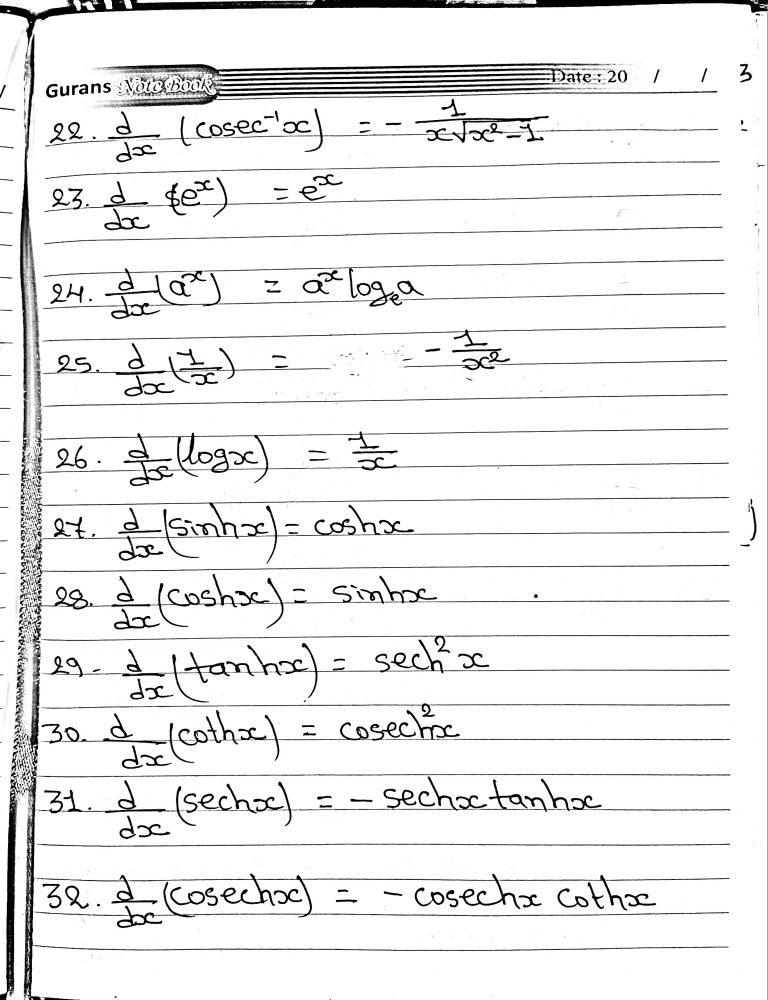 Gurans Note Book Date : 20 / / 3
22. d/dx (cosec⁻¹x) = - 1/(x√(x²-1))
23. d/dx (eˣ) = eˣ
24. d/dx (aˣ) = aˣ logₑa
25. d/dx (1/x) = - 1/x²
26. d/dx (logx) = 1/x
27. d/dx (sinhx) = coshx
28. d/dx (coshx) = sinhx
29. d/dx (tanhx) = sech²x
30. d/dx (cothx) = cosech²x
31. d/dx (sechx) = - sechx tanhx
32. d/dx (cosechx) = - cosechx cothx